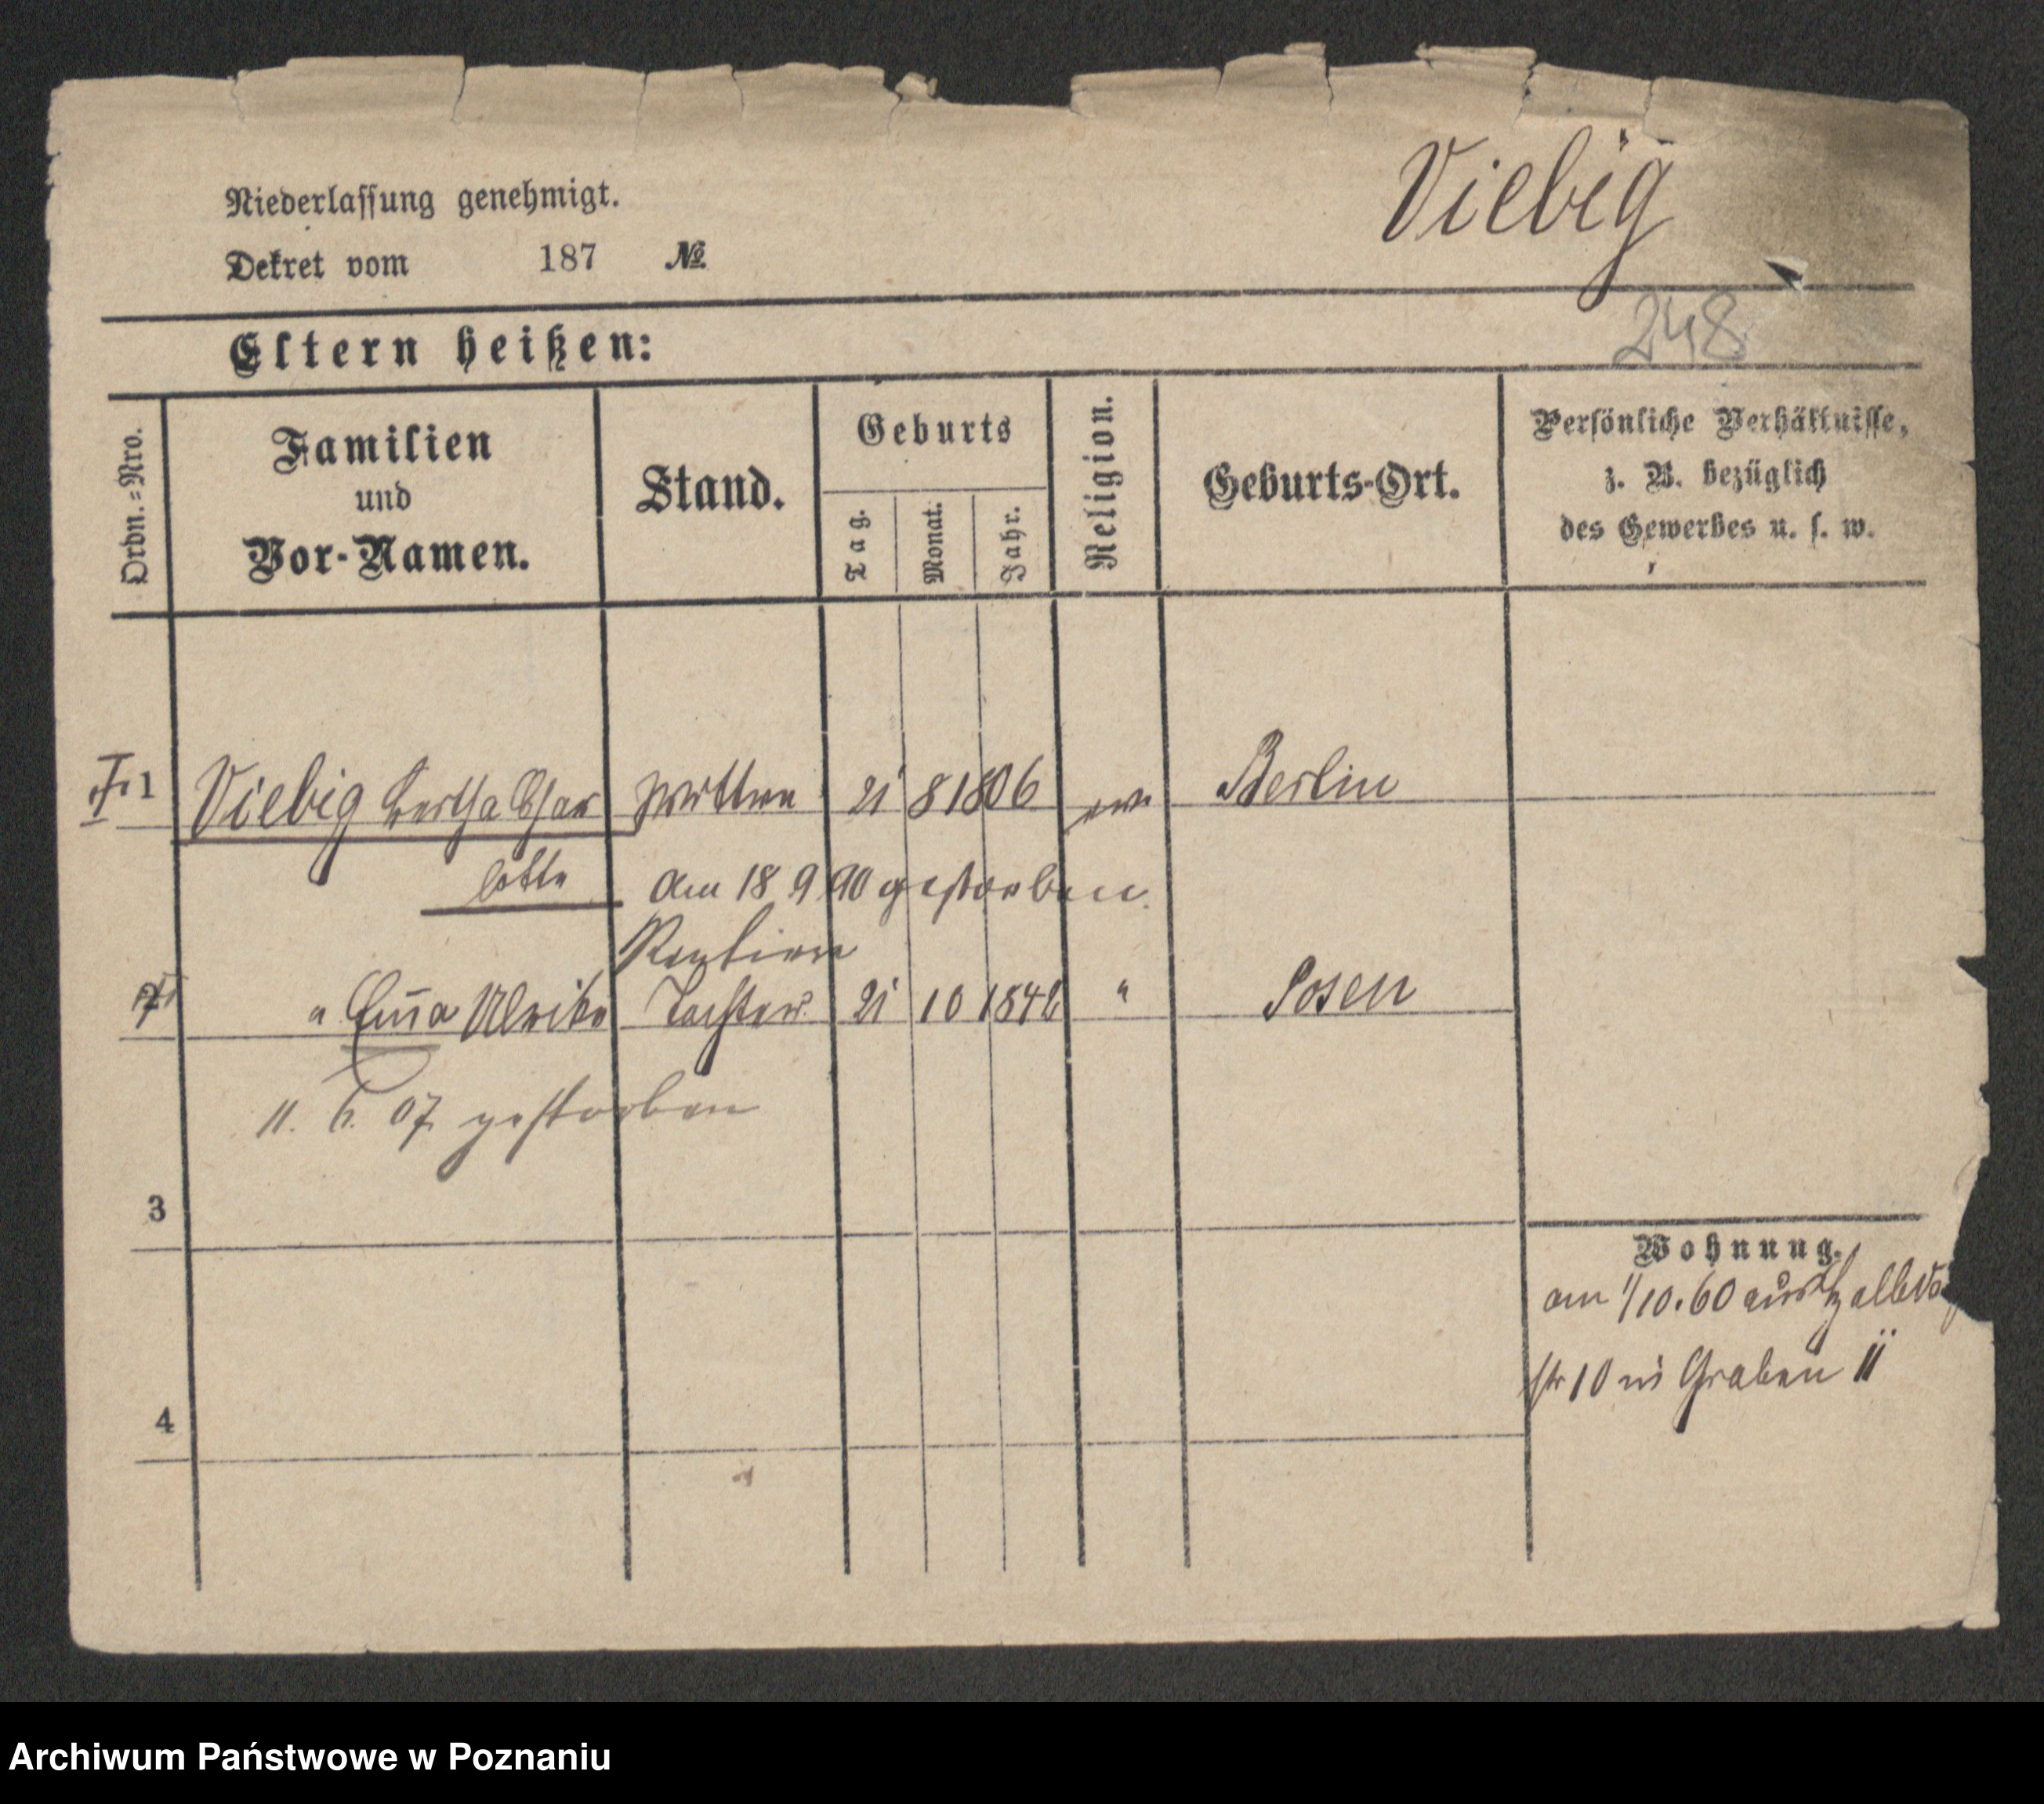 Viebig
Niederlassung genehmigt.
Dekret vom 187 №
248
Eltern heißen:
Ordn.=Nro.
Familien
und
Vor-Namen.
Stand.
Geburts
Tag.
Monat.
Jahr.
Religion.
Geburts-Ort.
Persönliche Verhältnisse,
z. B. bezüglich
des Gewerbes u. s. w.
1 Viebig Bertha Char Wittwe 21 8 1806 ev Berlin
lotte am 18 9 90 gestorben.
Rentiere
" Em̄a Ulrike Tochter 21 10 1842 " Posen
11. 6. 07 gestorben
3
Wohnung.
am 1/10.60 aus Halbdo
str 10 n Graben 11
4
Archiwum Państwowe w Poznaniu